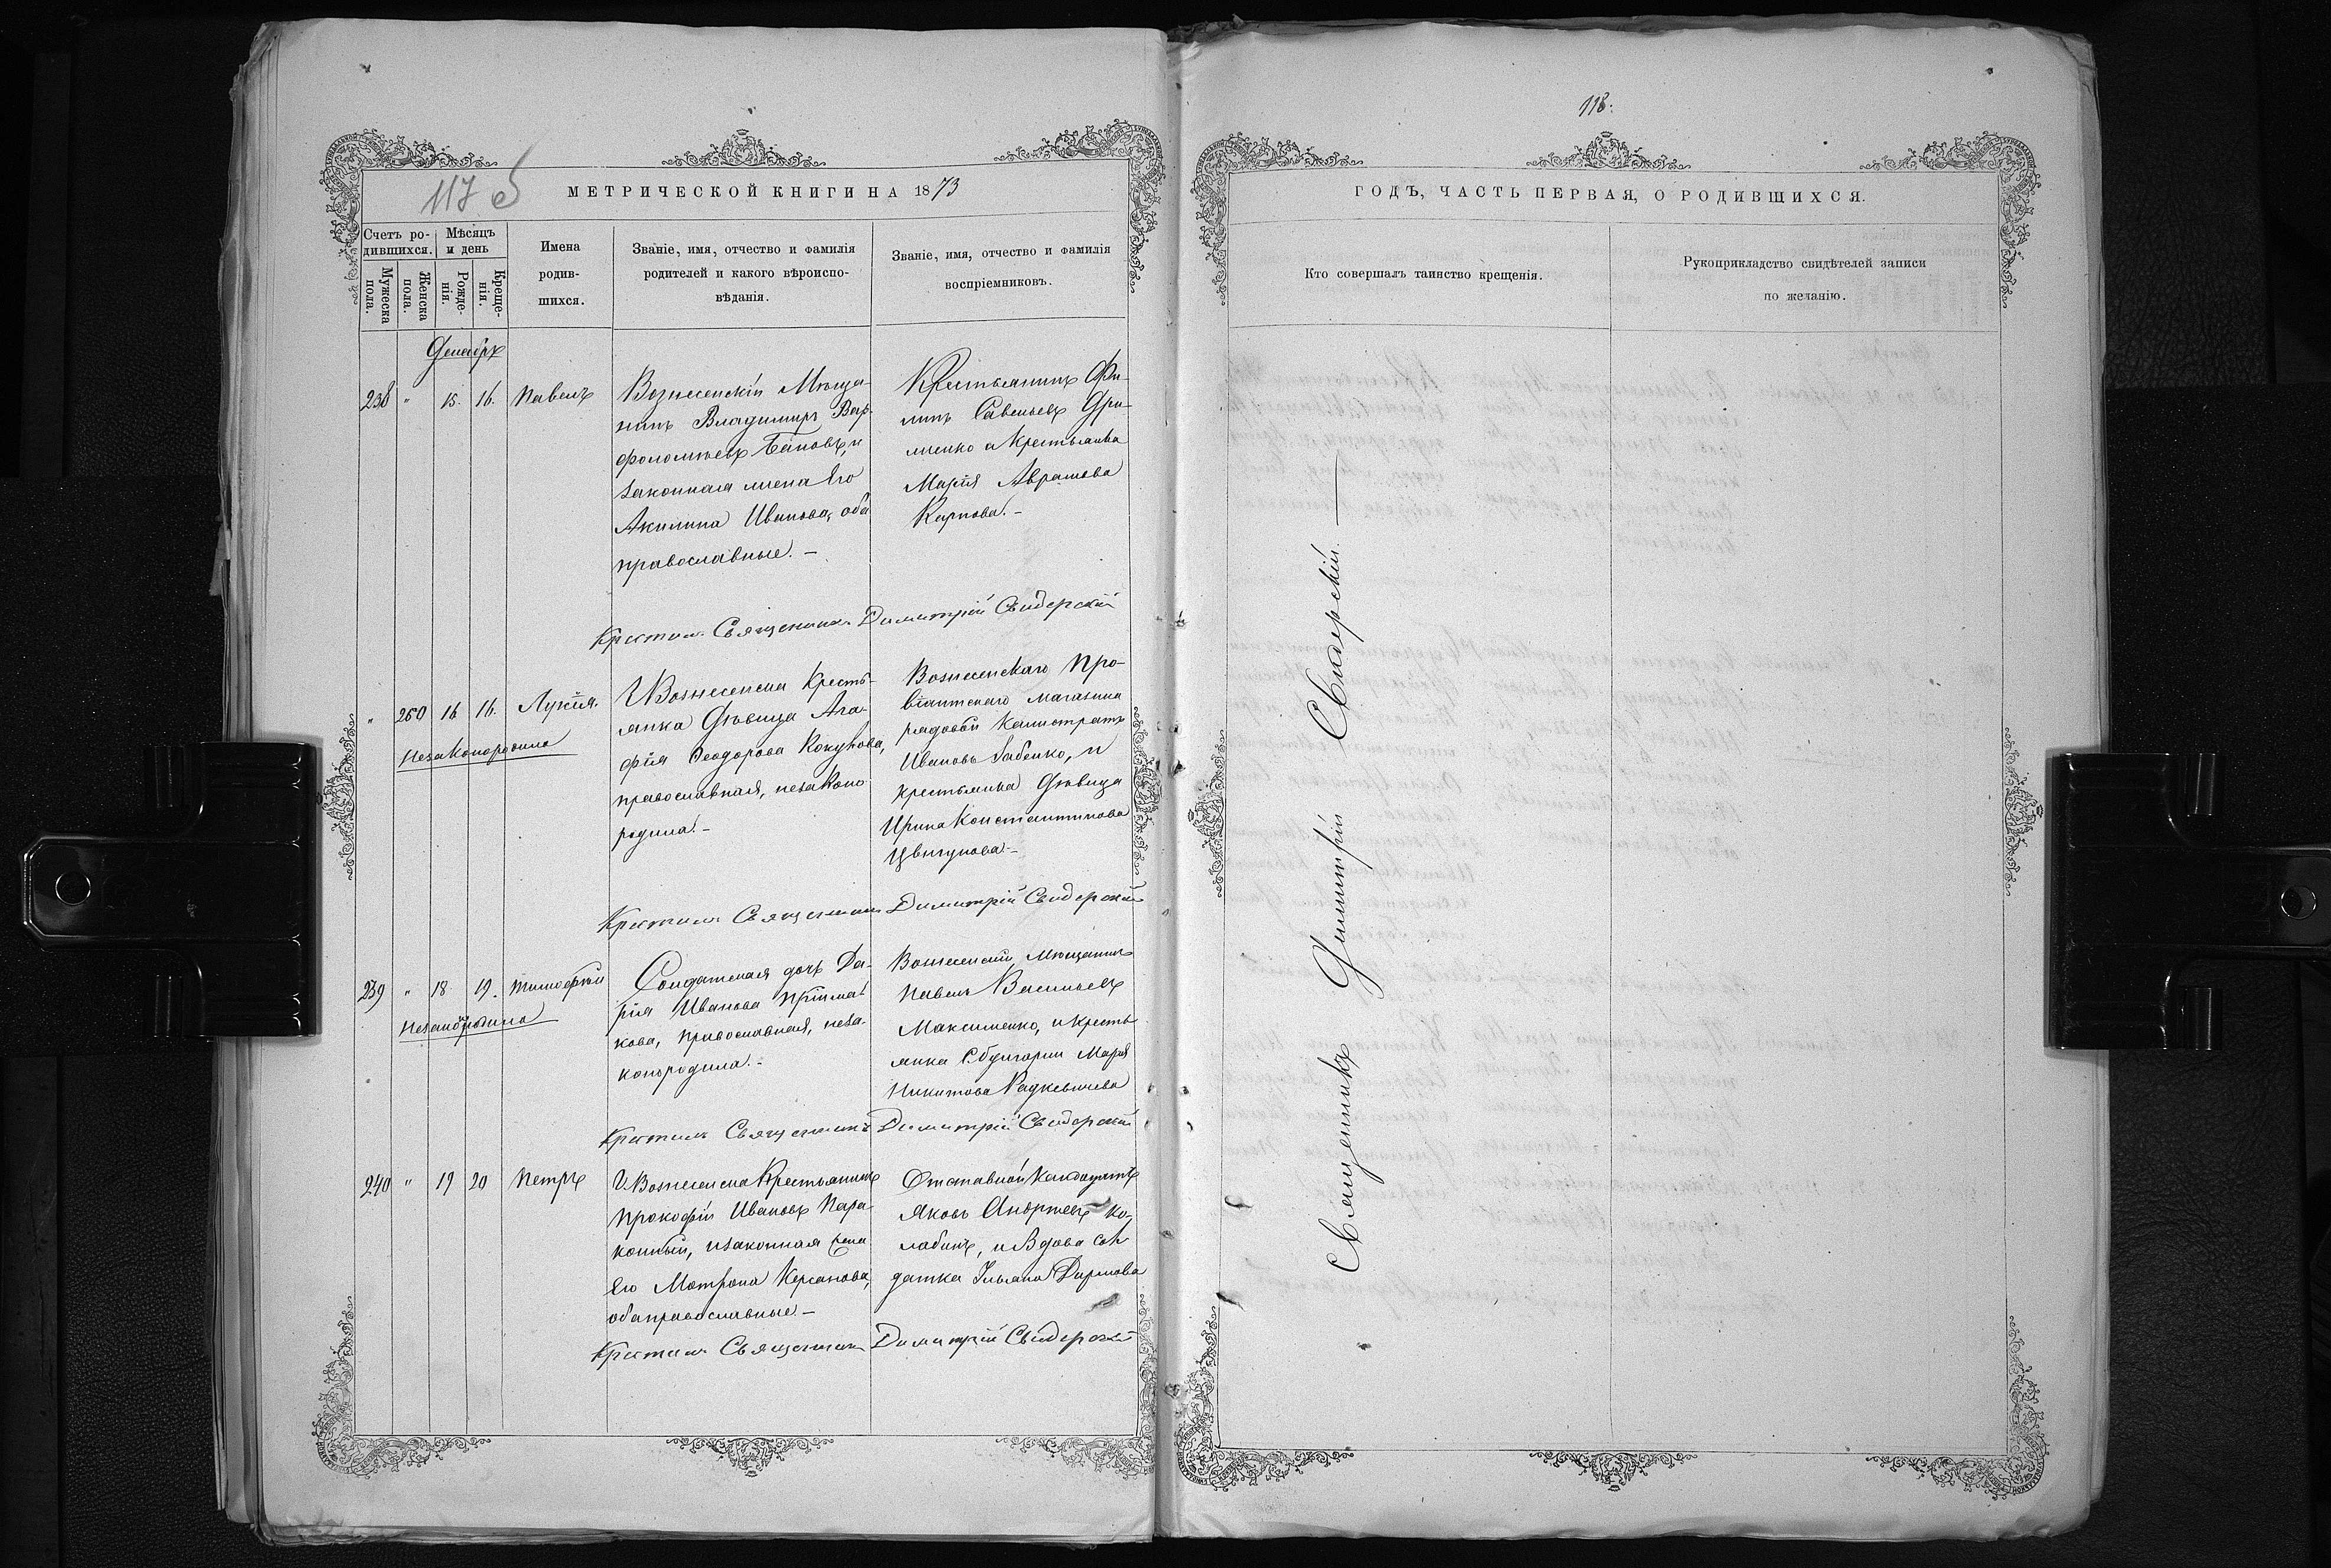 117 об
МЕТРИЧЕСКОЙ КНИГИ НА 1873
Счетъ ро-
дившихся.
Мѣсяцъ
и день
Мужеска
пола.
Женска
пола.
Рожде-
нія.
Креще-
нія.
Имена
родив-
шихся.
Званіе, имя, отчество и фамилія
родителей и какого вѣроиспо-
вѣданія.
Званіе, имя, отчество и фамилія
воспріемниковъ.
Декабрь
238 " 15. 16. Павелъ
Вознесенскій Мѣща-
нинъ Владимиръ Вар-
фоломѣевъ и
законная жена Его
Акилина Иванова, оба
православные. –
Крестьянинъ Фи-
липъ Савельевъ Гри-
ценко и крестьянка
Марія Аврамова
Карпова. –
Крестилъ Священникъ Димитрій Свидерскій
" 260 16 16. Лукія.
Незаконорожденная
Г. Вознесенска Кресть-
янка Дѣвица Ага-
фія Ѳеодорова
православная, незаконо
родила. –
Вознесенскаго Про-
віантскаго магазина
рядовой Калистратъ
Ивановъ Бабенко, и
крестьянка Дѣвица
Ирина Константинова
Цвигунова –
Крестилъ Священникъ Димитрій Свидерскій
239 " 18 19. Тимофей
Солдатская дочь Да-
рія Иванова Пріима-
кова, православная, неза-
конородила. –
Вознесенскій Мѣщанинъ
Павелъ Васильевъ
Максименко, и кресть
янка С. Булгарки Марія
Никитова Радкевичева
Крестилъ Священникъ Димитрій Свидерскій
240 " 19 20 Петръ
Г. Вознесенска Крестьянинъ
Прокофій Ивановъ
и законная жена
Его Матрона
оба православные –
Отставной
Яковъ Андреевъ Ко-
лобинъ, и Вдова сол
датка
Крестилъ Священникъ Димитрій Свидерскій
118.
ГОДЪ, ЧАСТЬ ПЕРВАЯ, О РОДИВШИХСЯ.
Кто совершалъ таинство крещенія.
Рукоприкладство свидѣтелей записи
по желанію.
Священникъ Димитрій Свидерскій. —